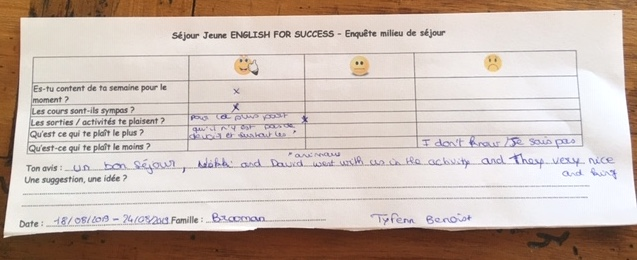 Séjour Jeune ENGLISH FOR SUCCESS – Enquête milieu de séjour
Es-tu content de ta semaine pour le moment ? x
Les cours sont-ils sympas ? x
Les sorties / activités te plaisent ? pour la plus part x
Qu'est ce qui te plaît le plus ? qu'il n'y est pas de et surtout les
Qu'est-ce qui te plaît le moins ? I don't know / Je sais pas
*animaux
Ton avis : un bon séjour, and David went with us in the activity and They very nice
and funny
Une suggestion, une idée ?
Date : 18/08/2019 – 24/08/2019 Famille : Brooman Tyfenn Benoist